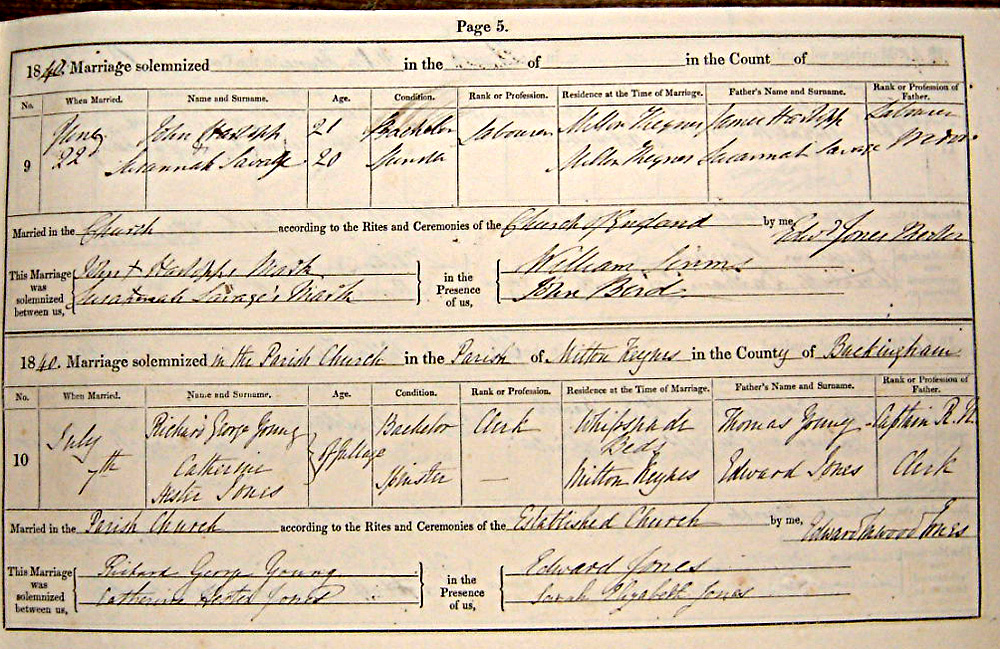 Page 5.
1840. Marriage solemnized in the of in the Count of
No. When Married. Name and Surname. Age. Condition. Rank or Profession. Residence at the Time of Marriage. Father's Name and Surname. Rank or Profession of Father.
9 June 22 John 21 Bachelor Labourer Milton Keynes James Labourer
& Susannah Savage 20 Spinster Milton Keynes Susannah Savage
Married in the Church according to the Rites and Ceremonies of the Church of England by me, Edwd Jones Rector
This Marriage was solemnized between us, John X Mark in the Presence of us, William Simms
Susannah Savage's Mark John Bord
1840. Marriage solemnized in the Parish Church in the Parish of Milton Keynes in the County of Buckingham
No. When Married. Name and Surname. Age. Condition. Rank or Profession. Residence at the Time of Marriage. Father's Name and Surname. Rank or Profession of Father.
10 July 7th Richard George Young of full age Bachelor Clerk Whipsnade Beds Thomas Young Captain R.N.
Catherine Hester Jones Spinster — Milton Keynes Edward Jones Clerk
Married in the Parish Church according to the Rites and Ceremonies of the Established Church by me, Edward Jones
This Marriage was solemnized between us, Richard George Young in the Presence of us, Edward Jones
Catherine Hester Jones Sarah Elizabeth Jones